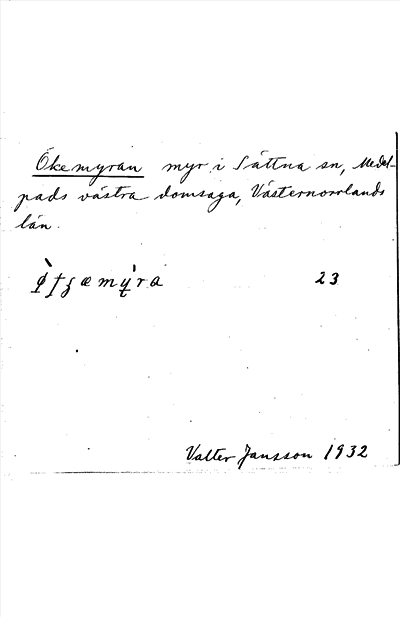 Ökemyran myr i Sättna sn, Medel-
pads västra domsaga, Västernorrlands
län.
23
Valter Jansson 1932